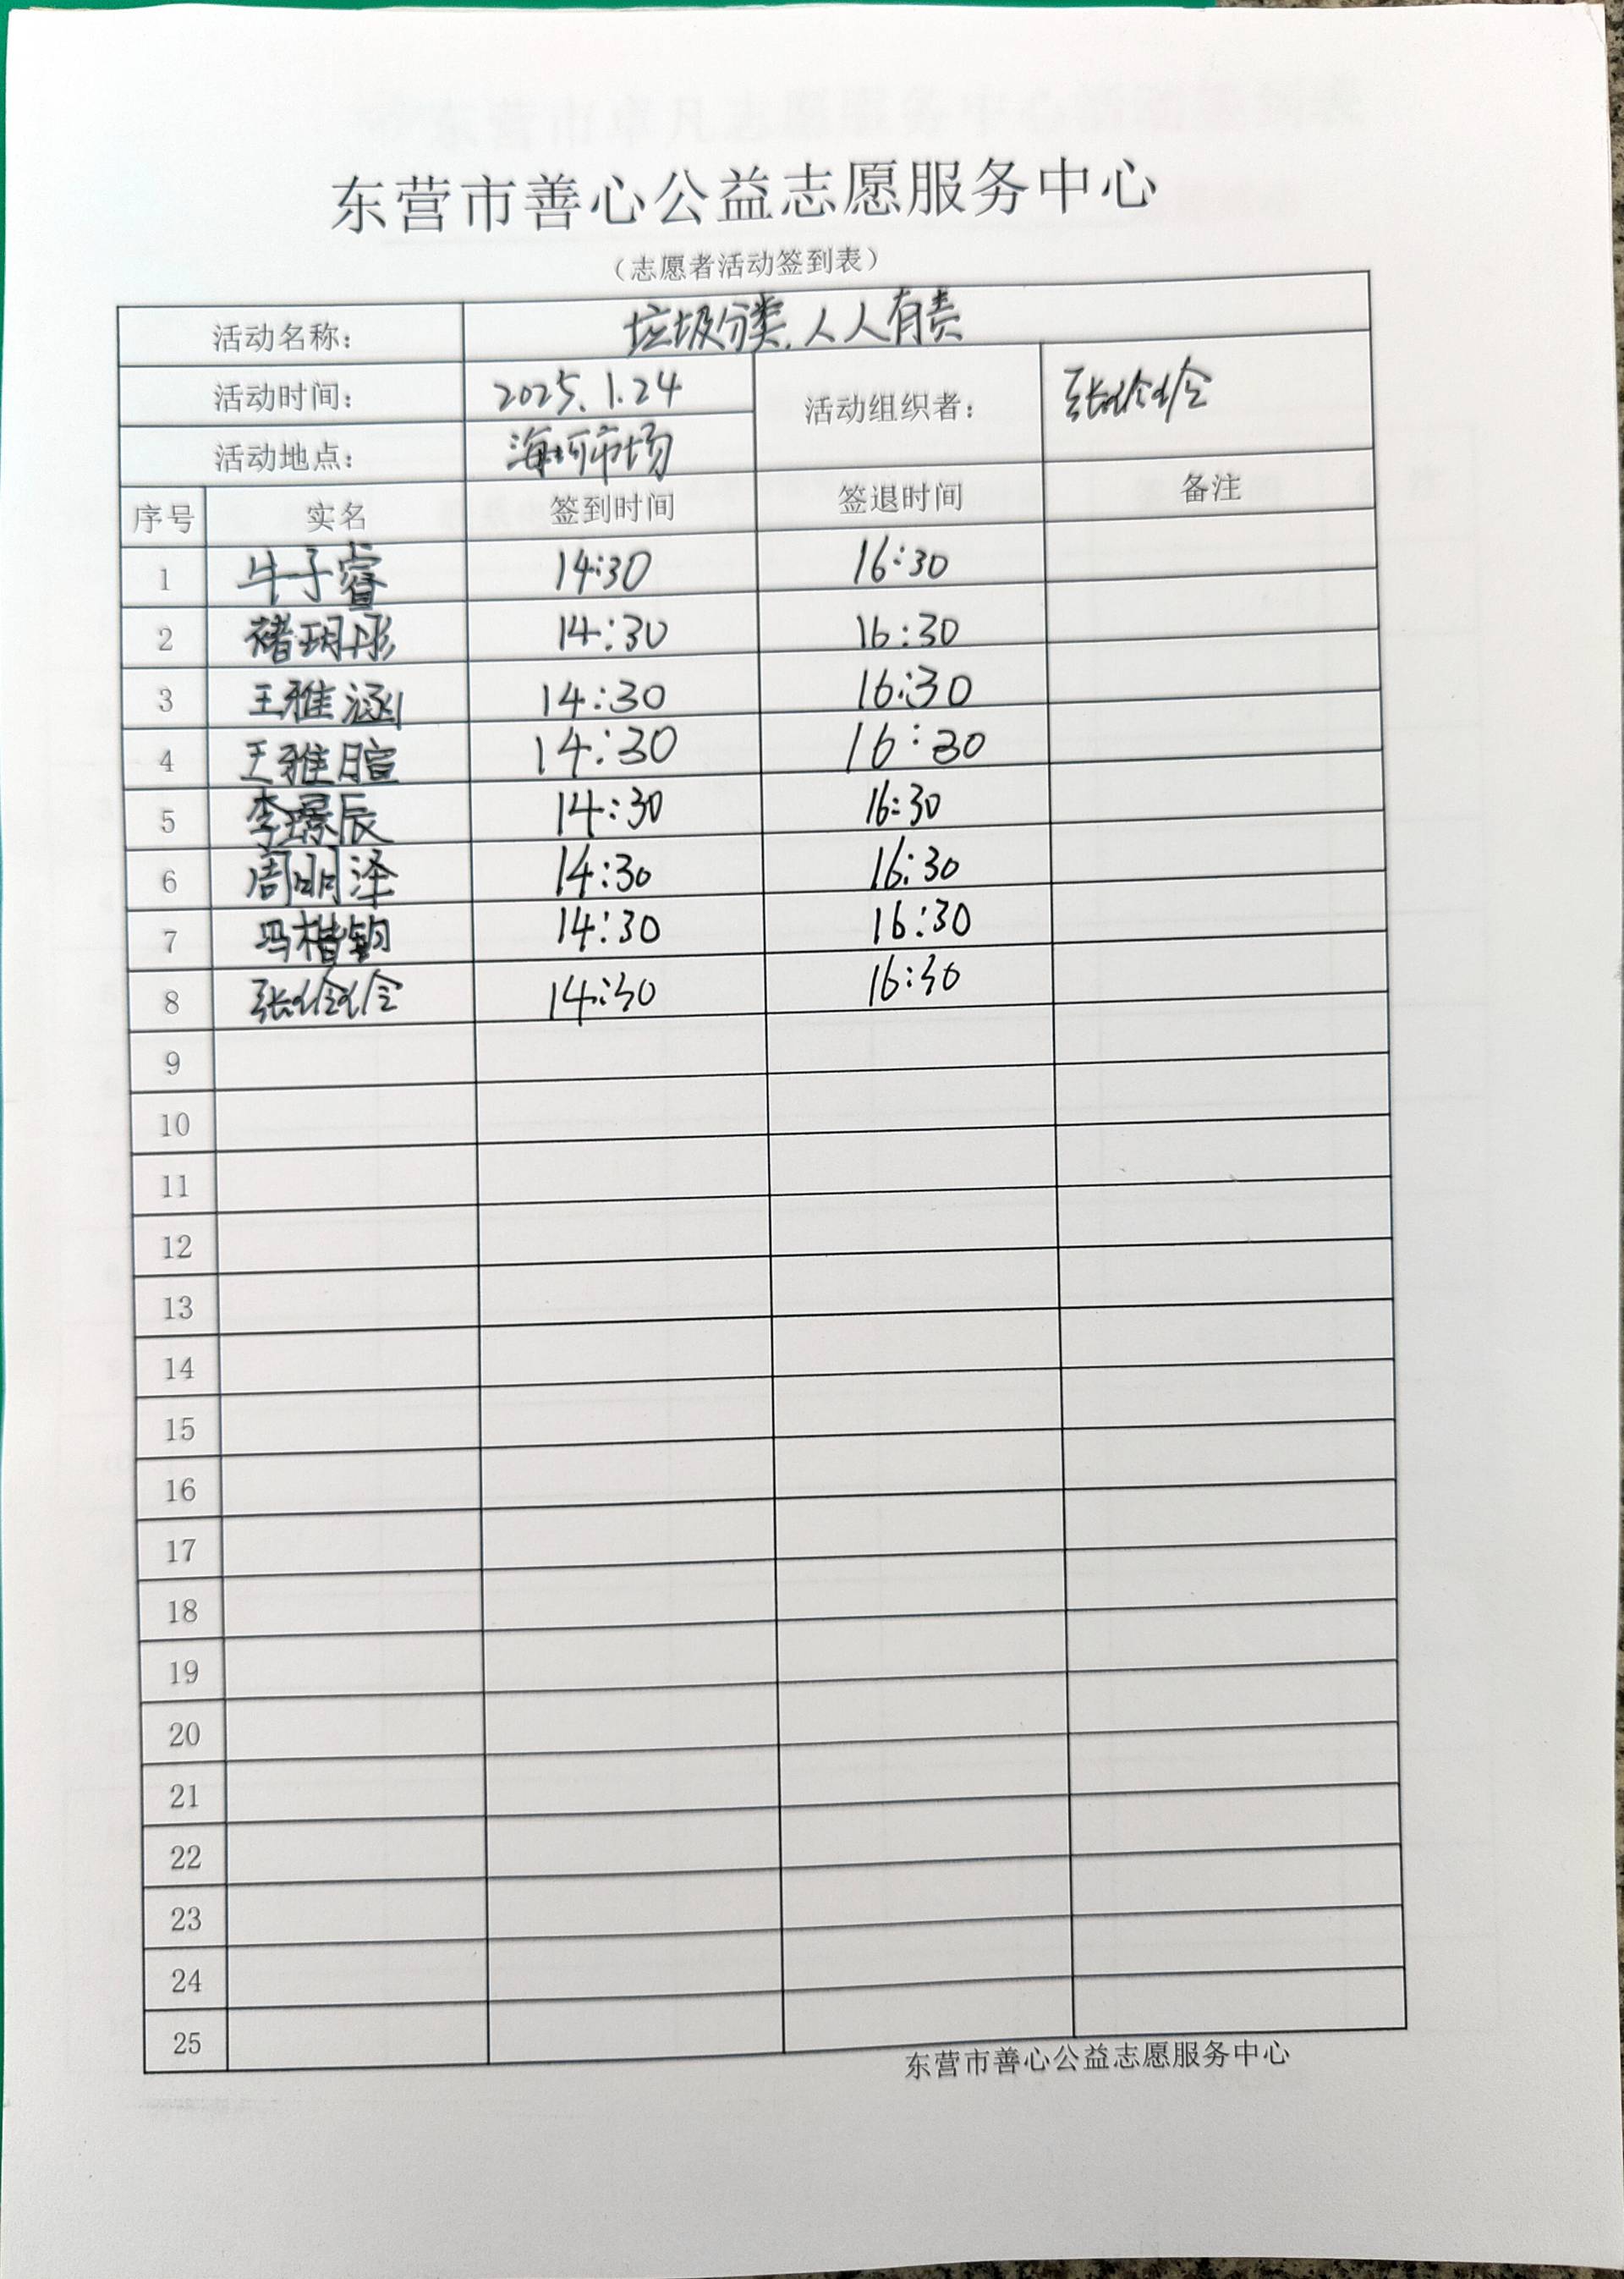 东营市善心公益志愿服务中心
（志愿者活动签到表）
活动名称： 垃圾分类，人人有责
活动时间： 2025.1.24 活动组织者： 张伶伶
活动地点： 海河市场
序号 实名 签到时间 签退时间 备注
1 牛子睿 14:30 16:30
2 褚玥彤 14:30 16:30
3 王雅涵 14:30 16:30
4 王雅暄 14:30 16:30
5 李璟辰 14:30 16:30
6 周明泽 14:30 16:30
7 冯楷钧 14:30 16:30
8 张伶伶 14:30 16:30
9
10
11
12
13
14
15
16
17
18
19
20
21
22
23
24
25
东营市善心公益志愿服务中心